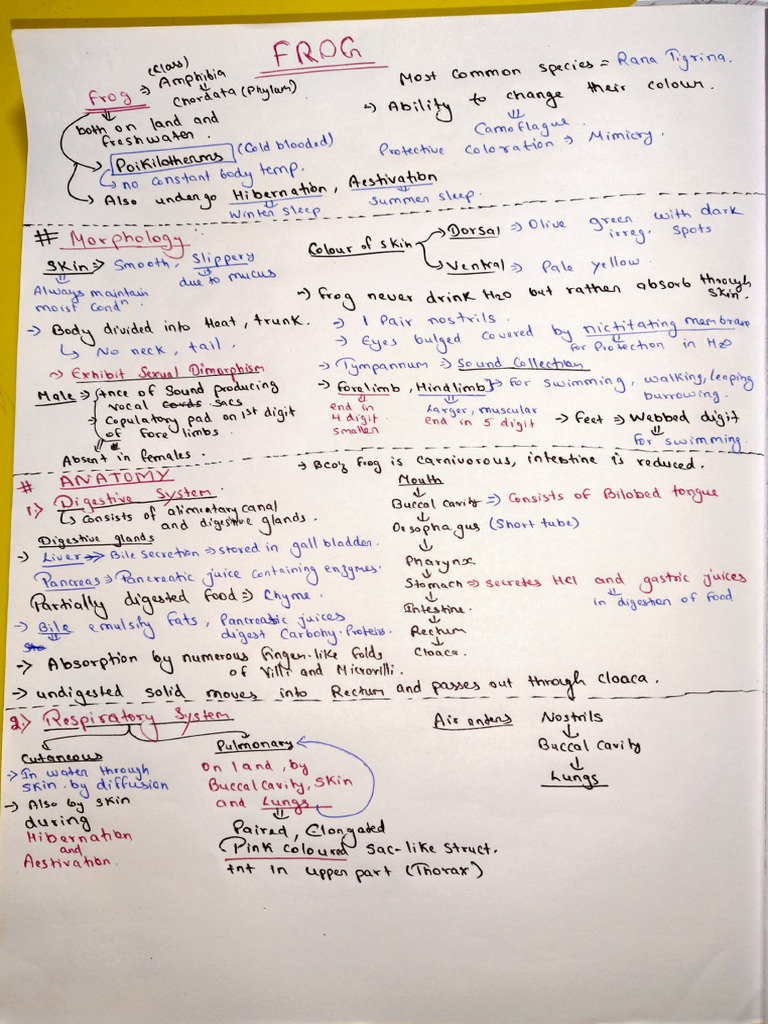 FROG
(Class)
Frog ⇒ Amphibia
Chordata (Phylum)
Most Common species = Rana Tigrina.
both on land and
freshwater.
→ Ability to change their colour.
Camoflague
Protective coloration → Mimicry.
Poikilotherms (Cold blooded)
no constant body temp.
→ Also undergo Hibernation, Aestivation
winter sleep summer sleep.
# Morphology
Skin ⇒ Smooth, Slippery
due to mucus
Always maintain
moist condn
Colour of Skin
Dorsal ⇒ Olive green with dark
irreg. spots
Ventral ⇒ Pale yellow.
→ Frog never drink H2O but rather absorb through
skin.
→ Body divided into Heat, trunk.
No neck, tail.
→ 1 Pair nostrils.
→ Eyes bulged covered by nictitating membrane
for Protection in H2O
→ Tympannum ⇒ Sound Collection
→ Exhibit Sexual Dimorphism
Male ⇒ +nce of Sound producing
vocal cords sacs
→ Copulatory pad on 1st digit
of fore limbs.
Absent in females.
→ Forelimb, Hindlimb ⇒ for swimming, walking, leaping
burrowing.
end in
4 digit
smaller
Larger, muscular
end in 5 digit
→ feet ⇒ Webbed digit
for swimming.
# ANATOMY
→ Bcoz frog is carnivorous, intestine is reduced.
1⟩ Digestive System
consists of alimentary canal
and digestive glands.
Digestive glands
→ Liver ⇒ Bile secretion ⇒ stored in gall bladder.
Pancreas ⇒ Pancreatic juice containing enzymes.
Partially digested food ⇒ Chyme.
→ Bile emulsify fats, Pancreatic juices
digest Carbohy. Proteins.
→ Absorption by numerous finger-like folds
of Villi and Microvilli.
→ undigested solid moves into Rectum and passes out through cloaca.
Mouth
Buccal cavity ⇒ Consists of Bilobed tongue
Oesophagus (Short tube)
Pharynx
Stomach ⇒ secretes HCl and gastric juices
in digestion of food
Intestine.
Rectum
Cloaca.
2⟩ Respiratory System
Cutaneous
→ In water through
skin by diffusion
→ Also by skin
during
Hibernation
and
Aestivation.
Pulmonary
On land, by
Buccal Cavity, Skin
and Lungs
Paired, Elongated
Pink coloured sac-like struct.
+nt in upper part (Thorax)
Air enters
Nostrils
Buccal Cavity
Lungs